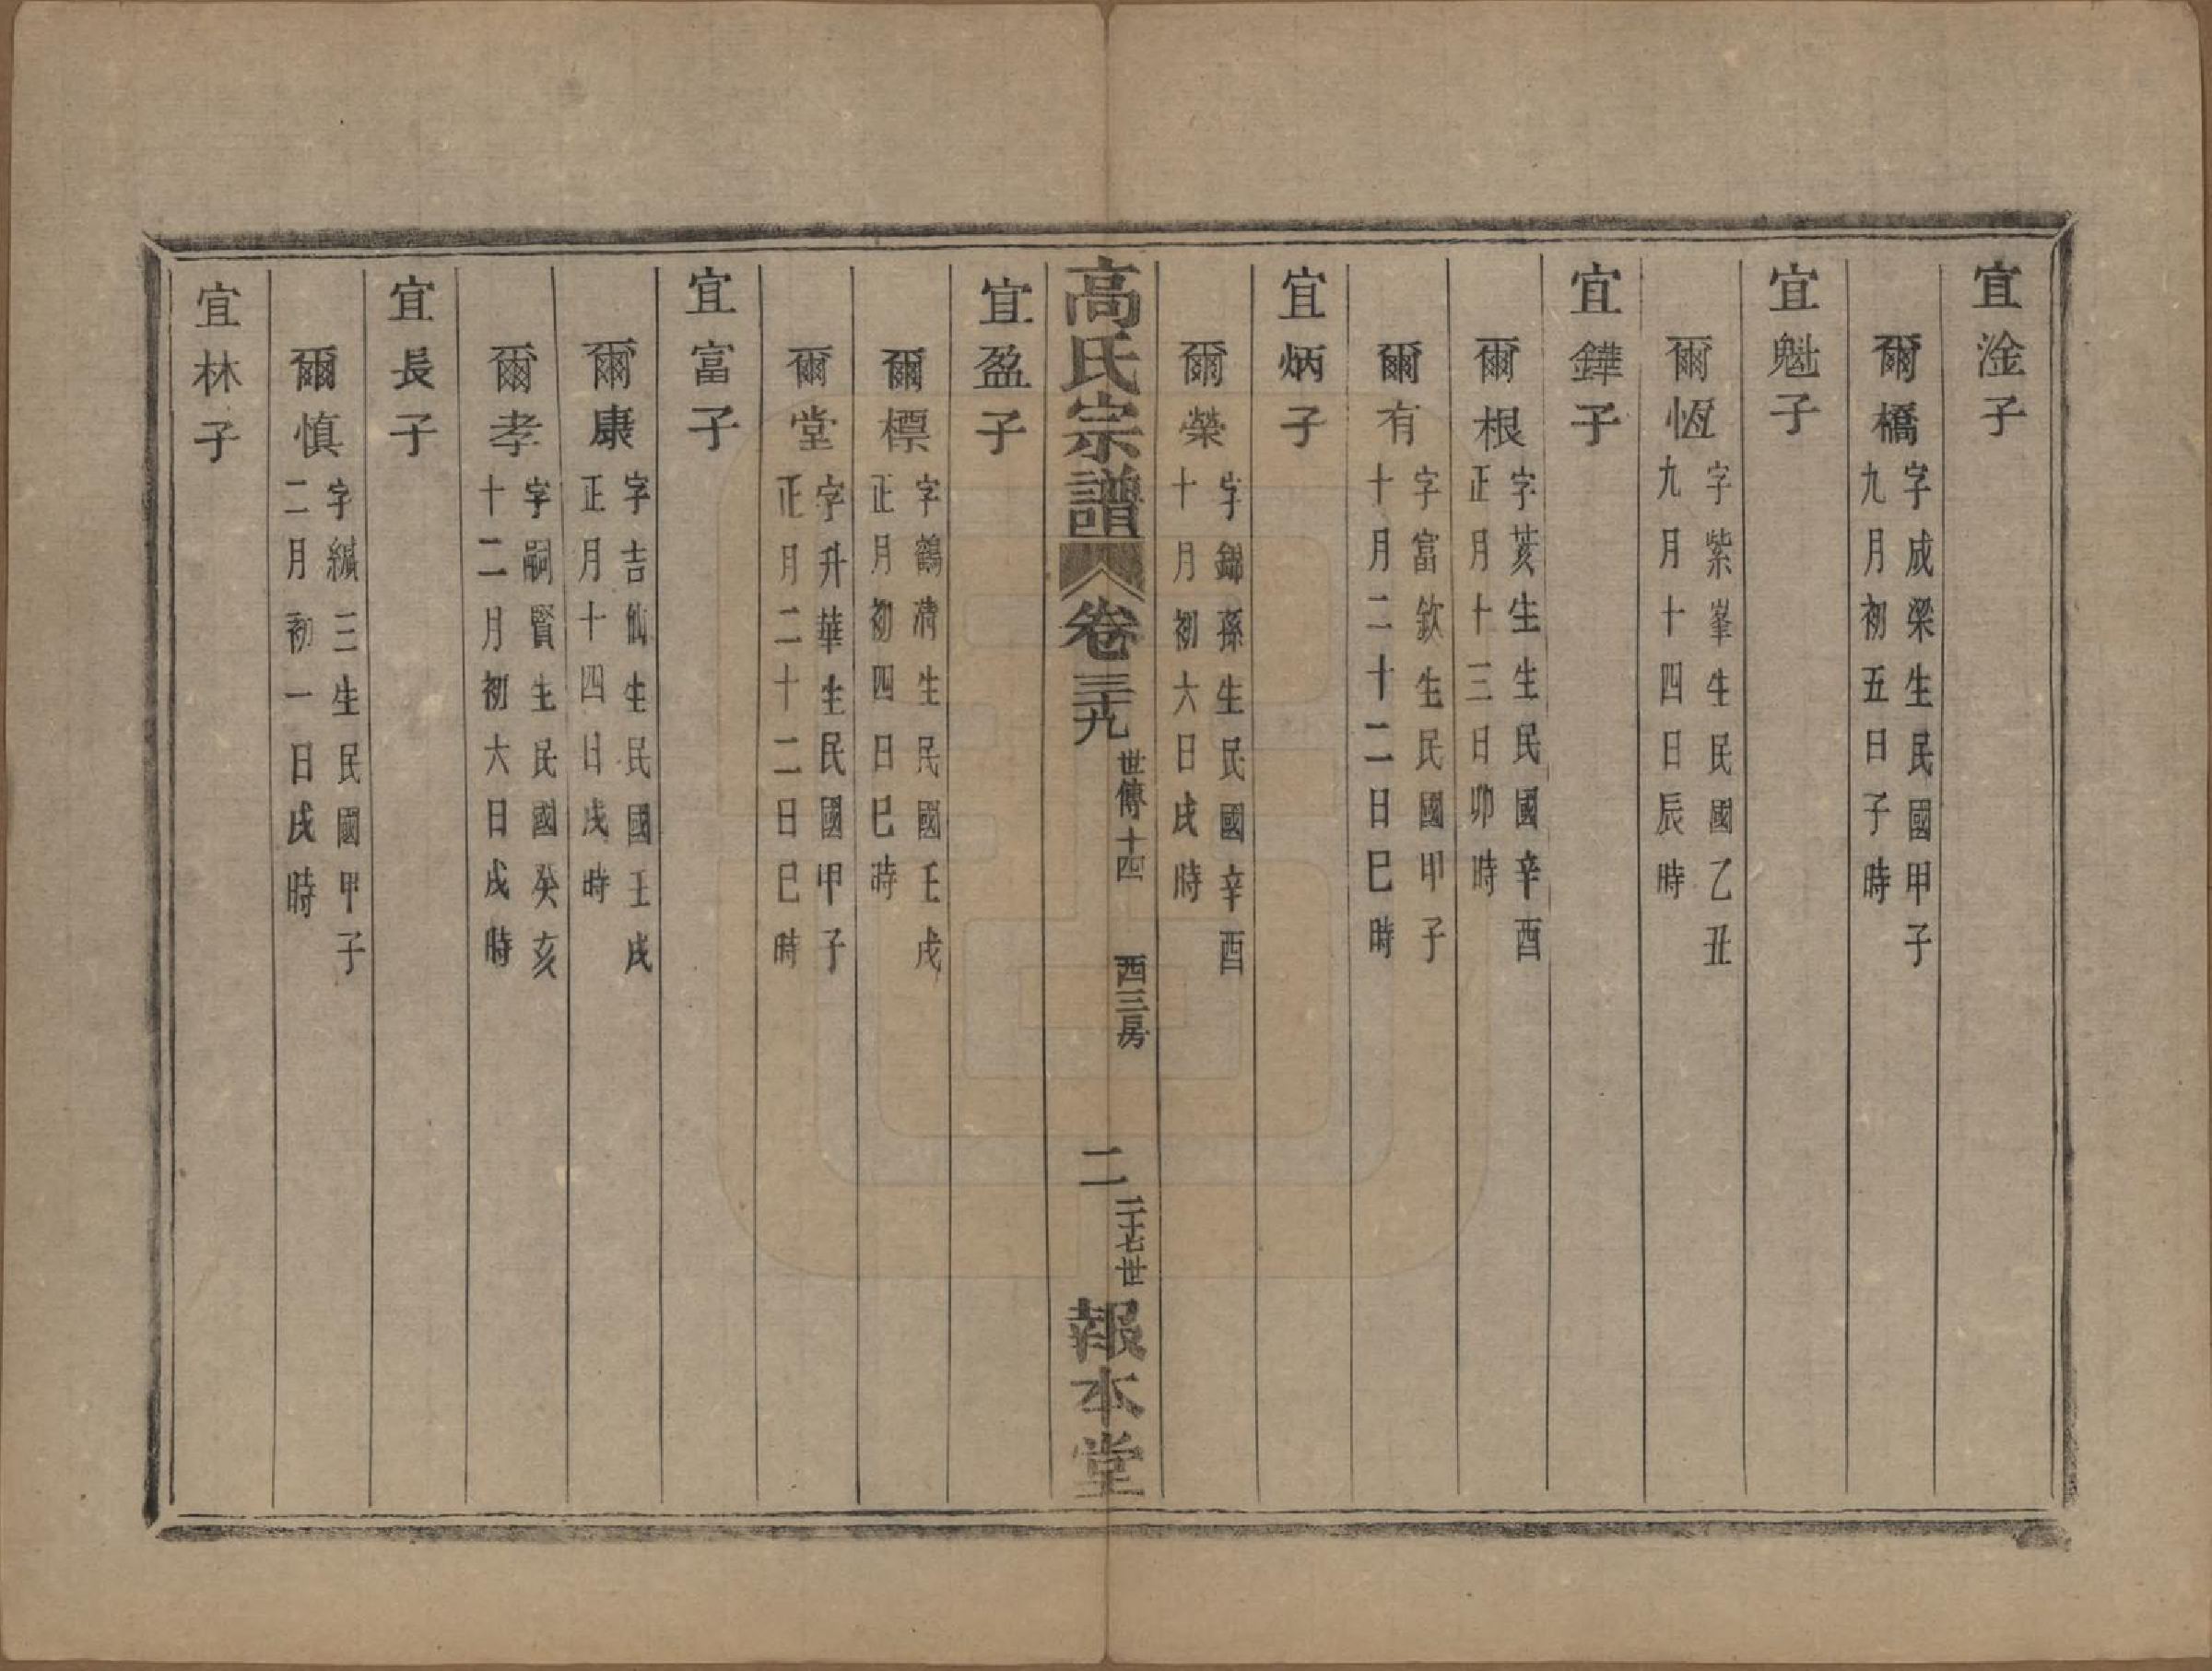 宜淦子
爾橋 字成梁生民國甲子九月初五日子時
宜魁子
爾恆 字紫峯生民國乙丑九月十四日辰時
宜鏵子
爾根 字荄生生民國辛酉正月十三日卯時
爾有 字富欽生民國甲子十月二十二日巳時
宜炳子
爾榮 字錦孫生民國辛酉十月初六日戌時
高氏宗譜 卷三十九 世傳十四 西三房 二 二十七世 報本堂
宜盈子
爾標 字鶴清生民國壬戌正月初四日巳時
爾堂 字升華生民國甲子正月二十二日巳時
宜富子
爾康 字吉仙生民國壬戌正月十四日戌時
爾孝 字嗣賢生民國癸亥十二月初六日戌時
宜長子
爾慎 字緘三生民國甲子二月初一日戌時
宜林子